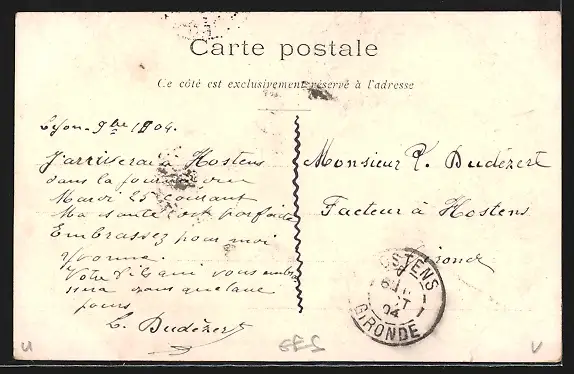 Carte postale
Ce côté est exclusivement réservé à l'adresse
Lyon. 9bre 1904.
J'arriverai à Hostens
dans la journée du
Mardi 25 courant
Ma santé est parfaite
Embrassez pour moi
Yvonne.
Votre ami vous
dans quelque
jours
L. Dudézert
Monsieur P. Dudézert
Facteur à Hostens
Gironde
HOSTENS
OCT
04
GIRONDE